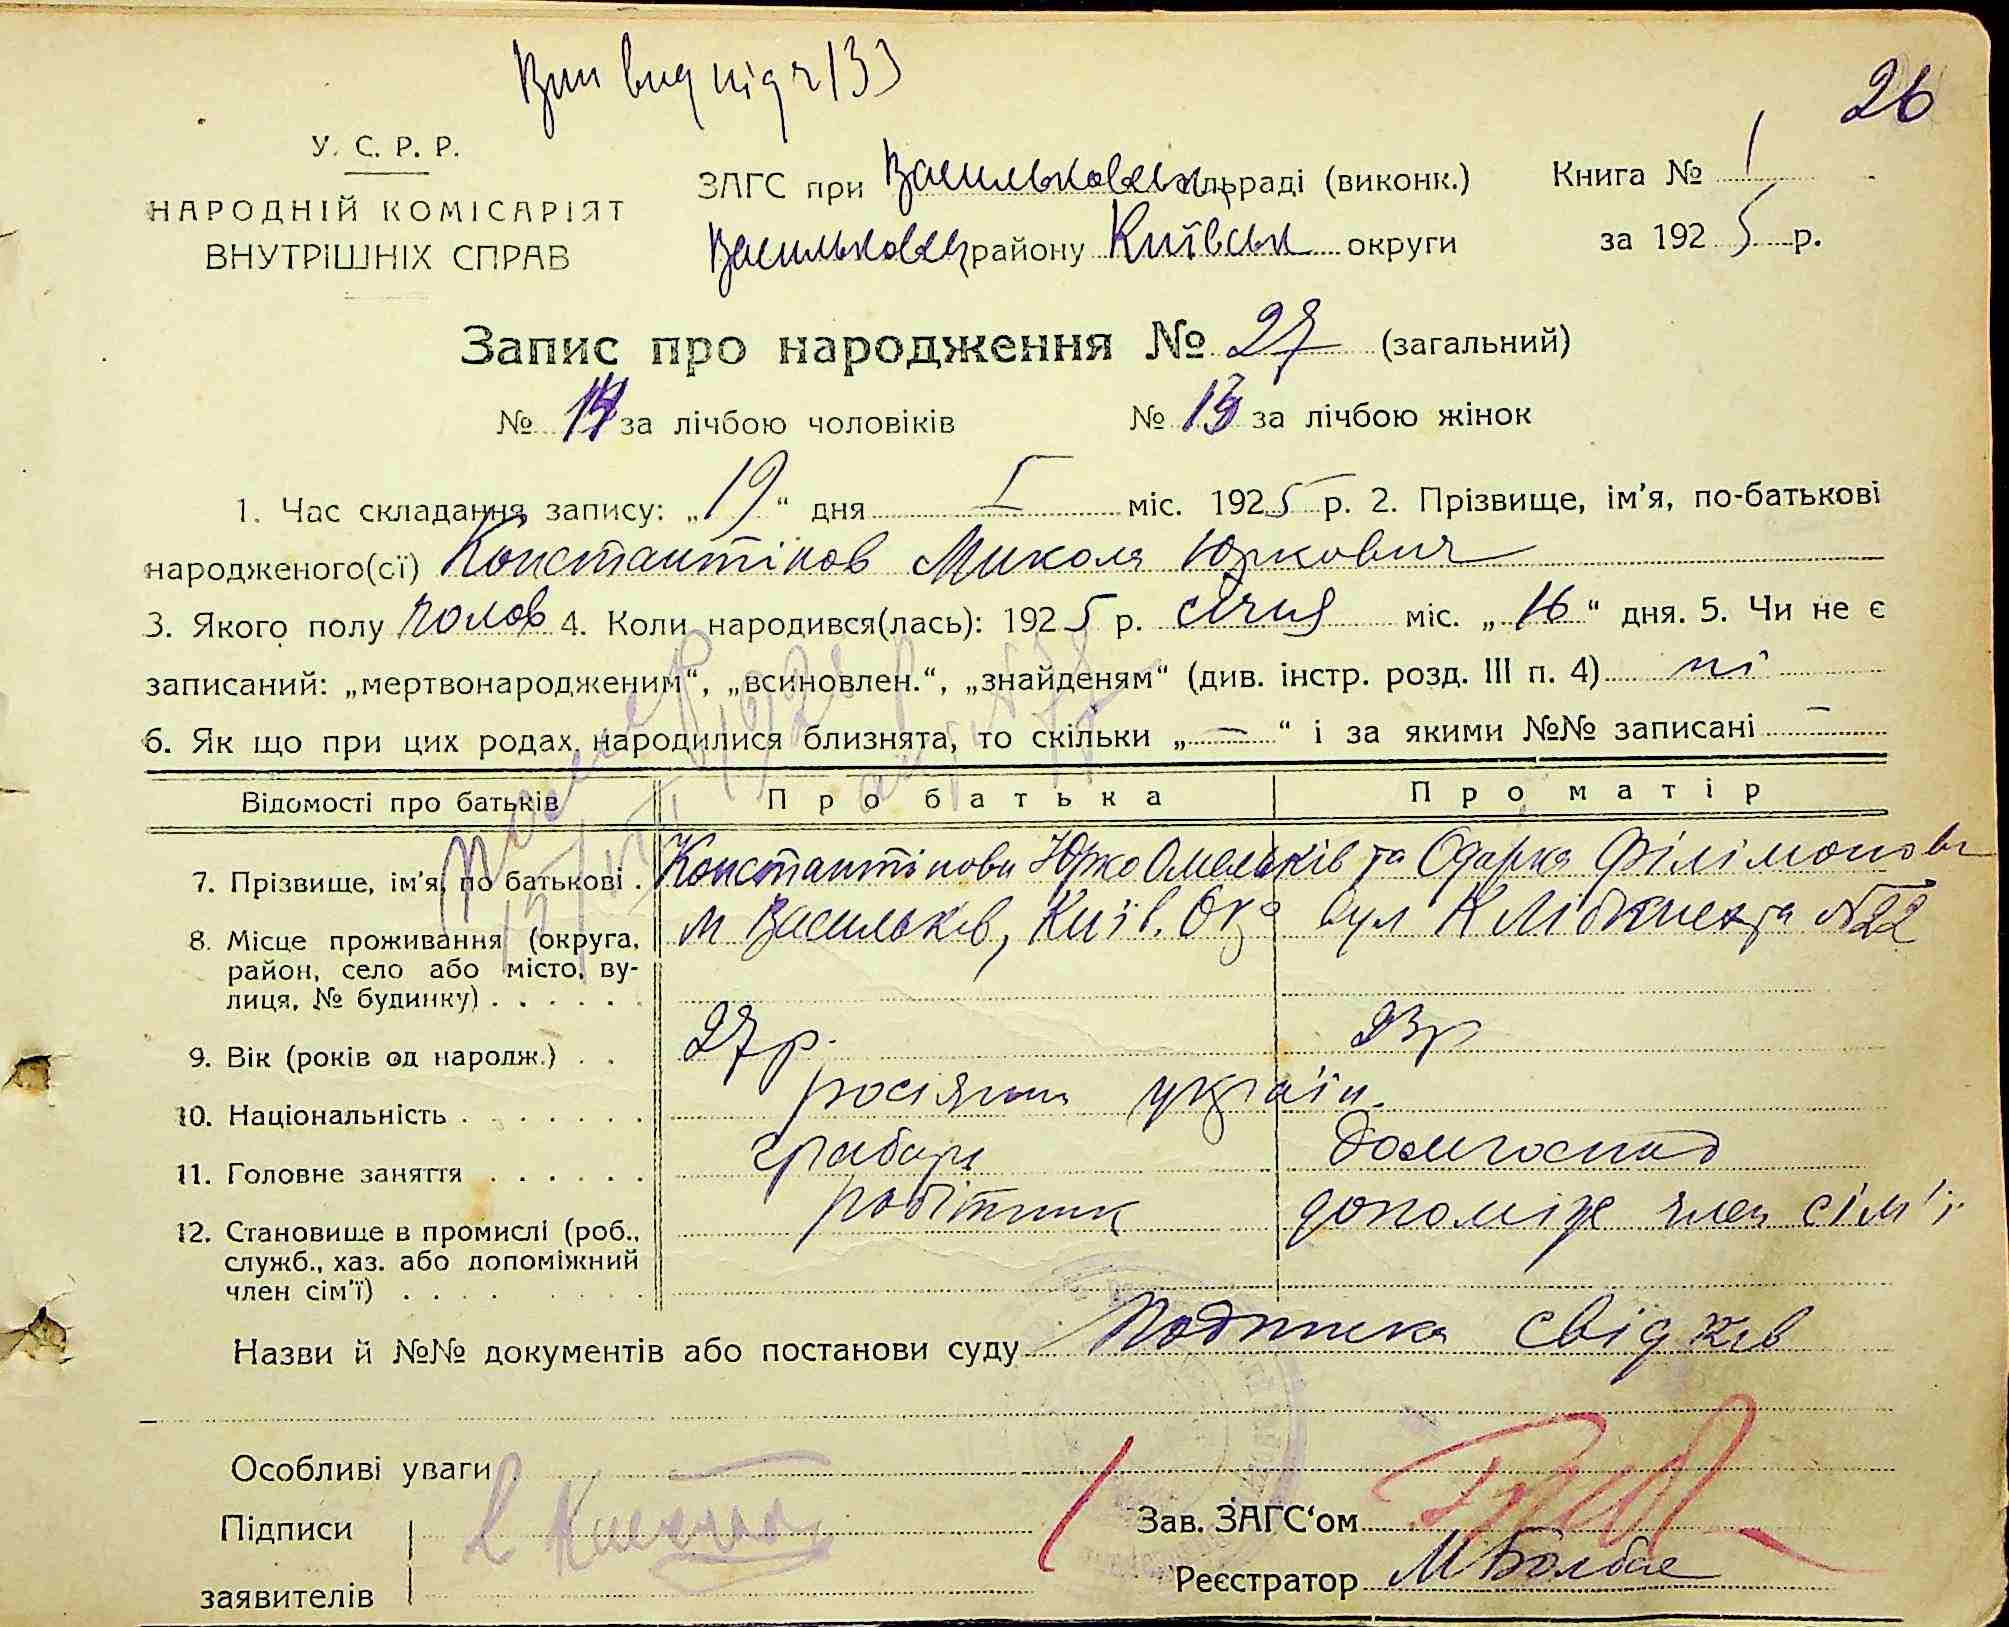 26
У. С. Р. Р.
НАРОДНІЙ КОМІСАРІЯТ
ВНУТРІШНІХ СПРАВ
ЗАГС при Васильковськ раді (виконк.) Книга № 1
району Київськ округи за 1925 р.
Запис про народження № 27 (загальний)
№ 14 за лічбою чоловіків № 13 за лічбою жінок
1. Час складання запису: „19“ дня I міс. 1925 р. 2. Прізвище, ім'я, по-батькові
народженого(сї) Константінов Микола Юркович
3. Якого полу 4. Коли народився(лась): 1925 р. січня міс. „16“ дня. 5. Чи не є
записаний: „мертвонародженим“, „всиновлен.“, „знайденям“ (див. інстр. розд. III п. 4) ні
6. Як що при цих родах народилися близнята, то скільки „—“ і за якими №№ записані —
Відомості про батьків Про батька Про матір
7. Прізвище, ім'я, по батькові . Константінови Юрко Омельків та Одарка Філімонова
8. Місце проживання (округа, район, село або місто, вулиця, № будинку) . . . . . . м Васильків, Київ. Окр вул К Лібкнехта №22
9. Вік (років од народж.) . . 27 р. 23 р
10. Національність . . . . . . . росіяни україн.
11. Головне заняття . . . . . . грабарь домгоспод
12. Становище в промислі (роб., служб., хаз. або допоміжний член сім'ї) . . . . робітник допоміж член сім'ї
Назви й №№ документів або постанови суду Подписка свідків
Особливі уваги
Підписи
заявителів
Зав. ЗАГС'ом
Реєстратор М Болбас